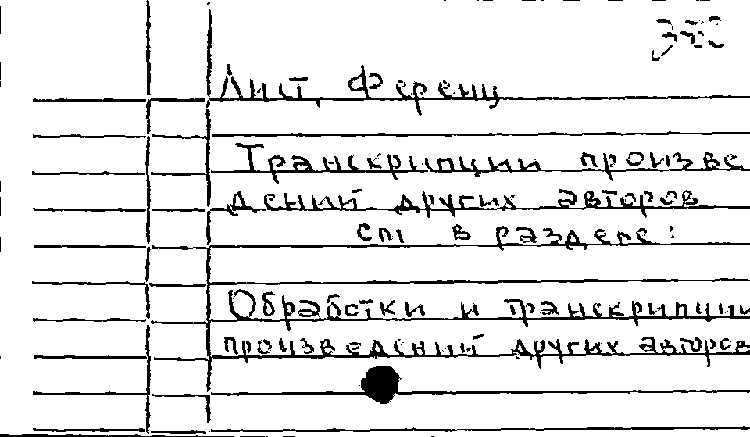 Лист, Ференц
Транскрипции произве
дений других авторов
см в разделе:
Обработки и транскрипции
произведений других авторов